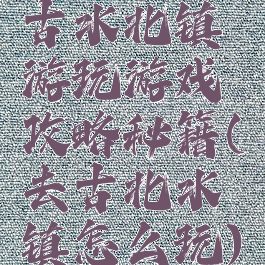 古水北镇
游玩游戏
攻略秘籍(
去古北水
镇怎么玩)